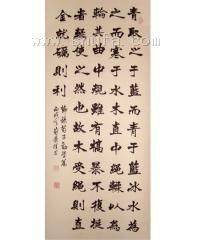 青取之于藍而青于藍冰水為
之而寒于水木直中繩輮以為
輪其曲中規雖有槁暴不復挺
者輮使之然也故木受繩則直
金就礪則利
荀子勸學篇